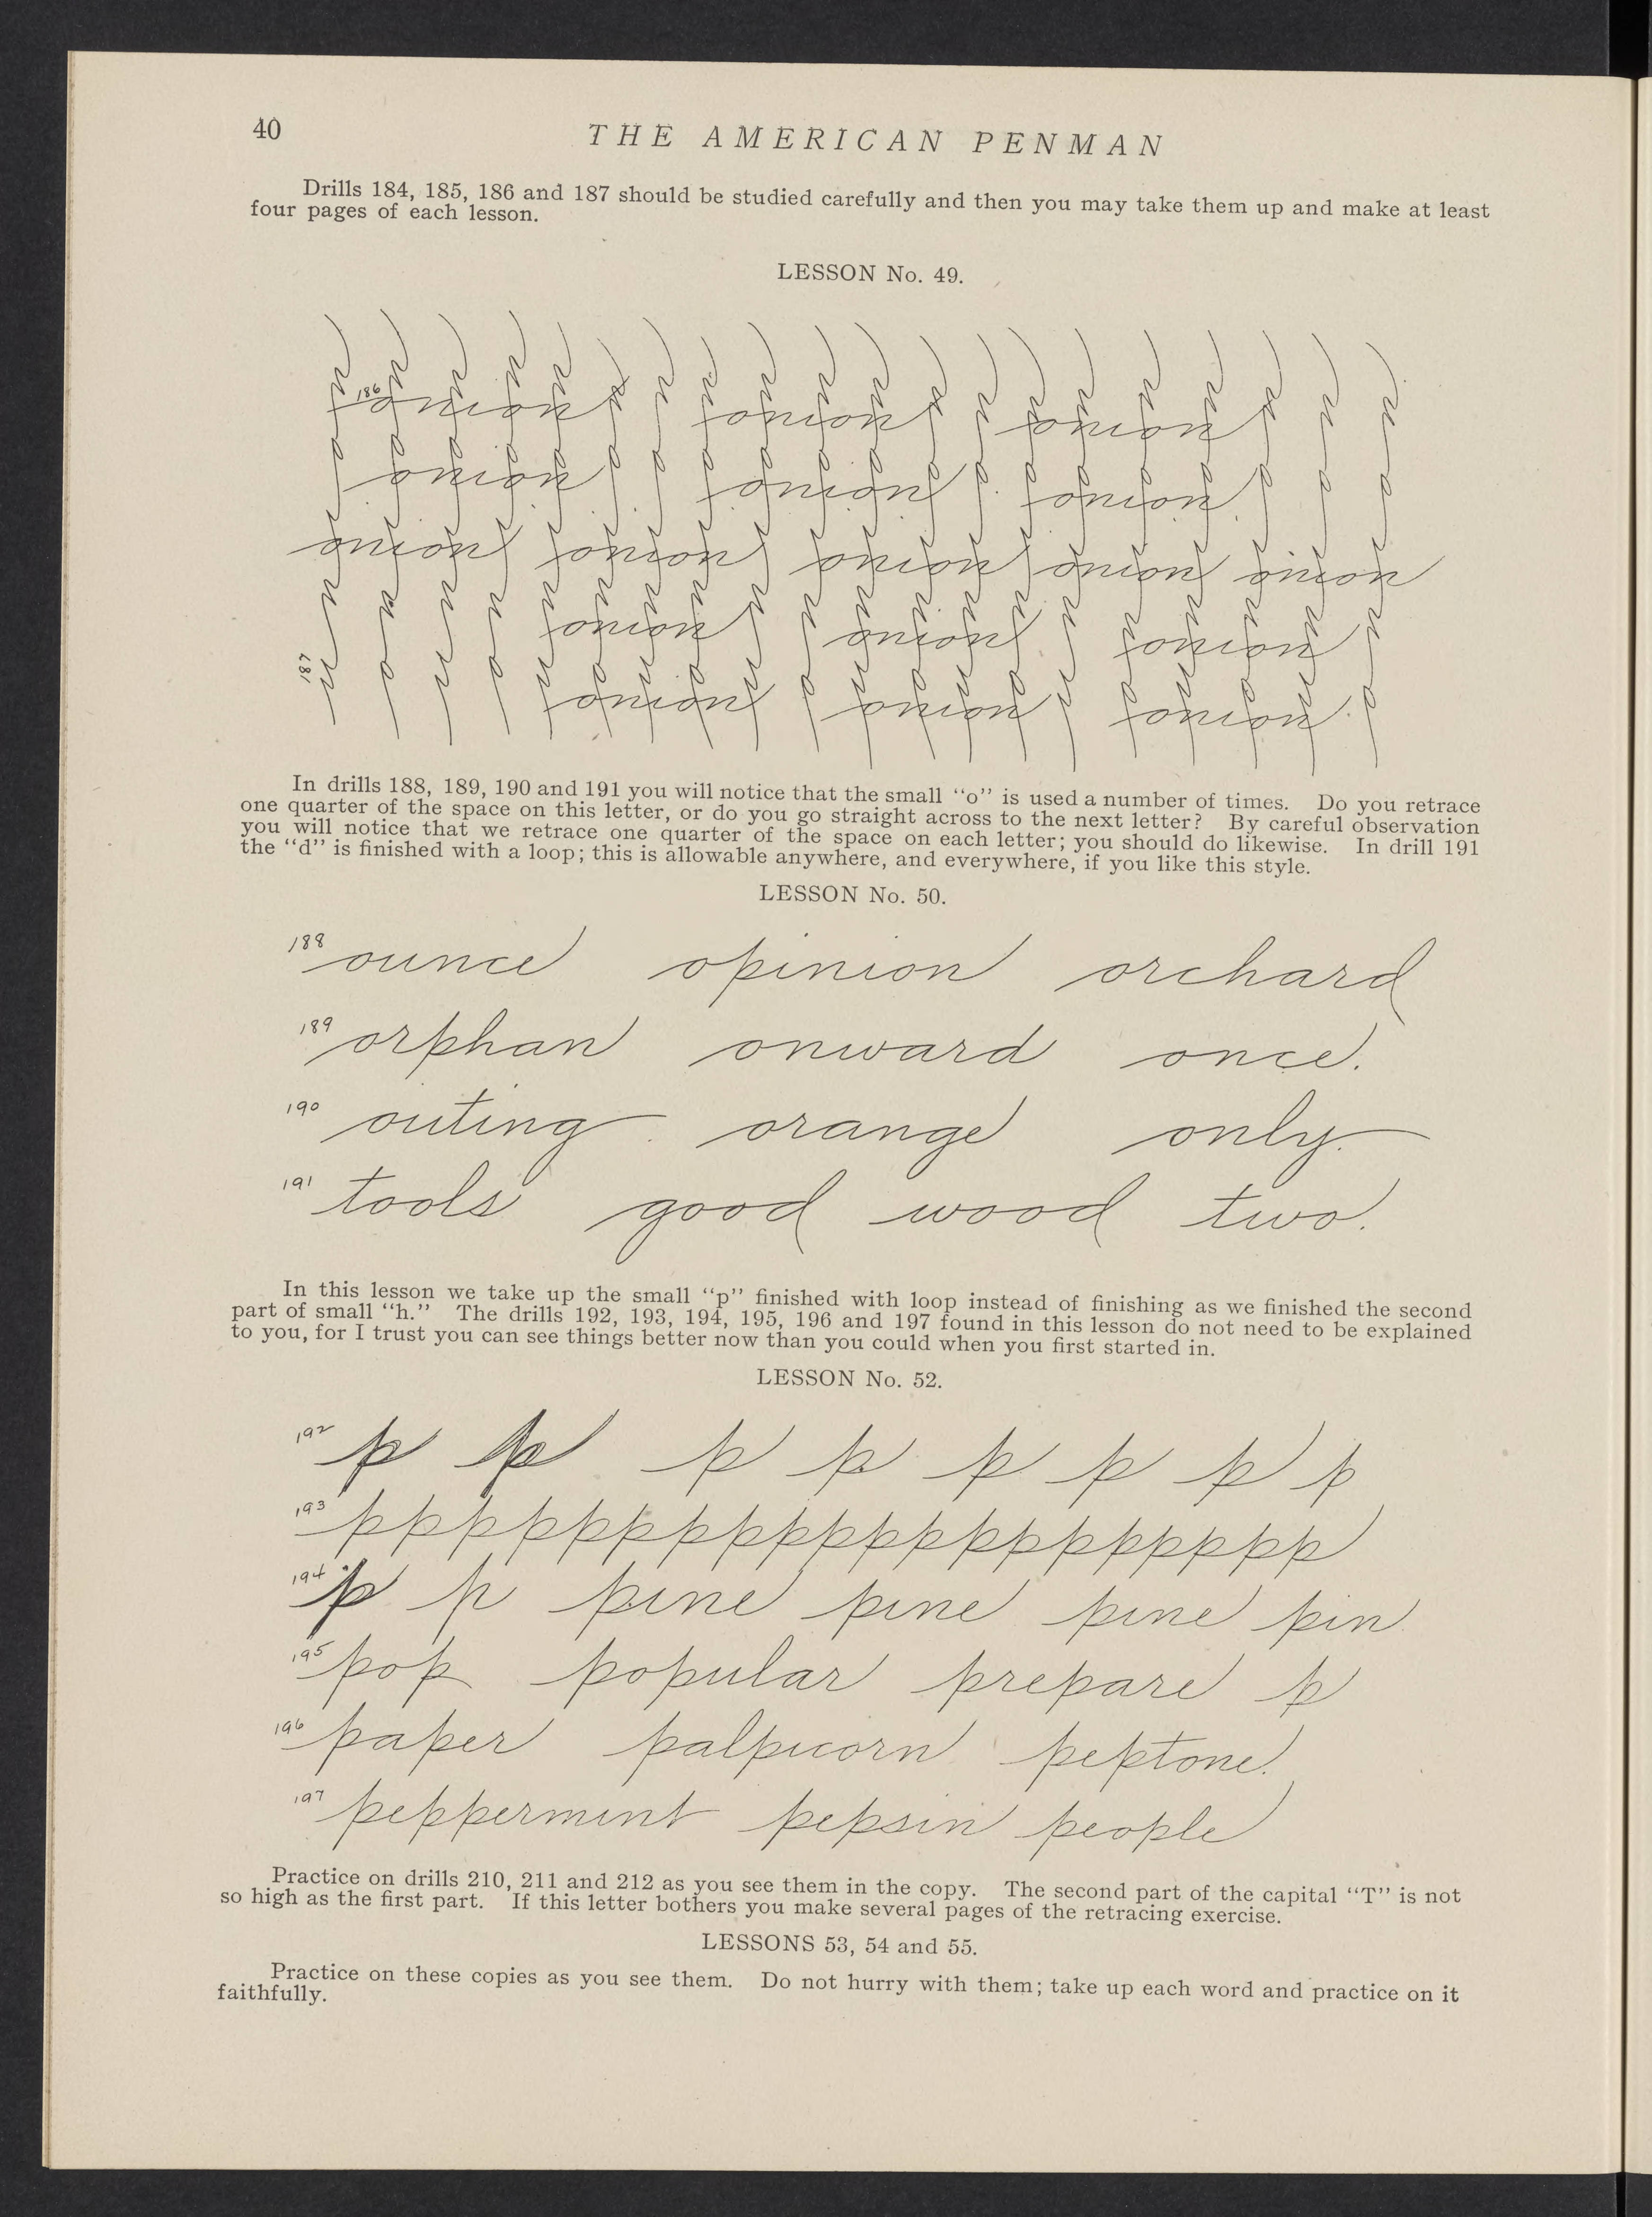 40
THE AMERICAN PENMAN
Drills 184, 185, 186 and 187 should be studied carefully and then you may take them up and make at least
four pages of each lesson.
LESSON No. 49.
186 onion onion onion
onion onion onion
onion onion onion onion onion
onion onion onion
187
onion onion onion
In drills 188, 189, 190 and 191 you will notice that the small “o” is used a number of times. Do you retrace
one quarter of the space on this letter, or do you go straight across to the next letter? By careful observation
you will notice that we retrace one quarter of the space on each letter; you should do likewise. In drill 191
the “d” is finished with a loop; this is allowable anywhere, and everywhere, if you like this style.
LESSON No. 50.
188 ounce opinion orchard
189 orphan onward once.
190 outing orange only.
191 tools good wood two.
In this lesson we take up the small “p” finished with loop instead of finishing as we finished the second
part of small “h.” The drills 192, 193, 194, 195, 196 and 197 found in this lesson do not need to be explained
to you, for I trust you can see things better now than you could when you first started in.
LESSON No. 52.
192 p p p p p p p p
193 pppppppppppppppppppp
194 p p pine pine pine pin
195 pop popular prepare p
196 paper palpicorn peptone.
197 peppermint pepsin people
Practice on drills 210, 211 and 212 as you see them in the copy. The second part of the capital “T” is not
so high as the first part. If this letter bothers you make several pages of the retracing exercise.
LESSONS 53, 54 and 55.
Practice on these copies as you see them. Do not hurry with them; take up each word and practice on it
faithfully.